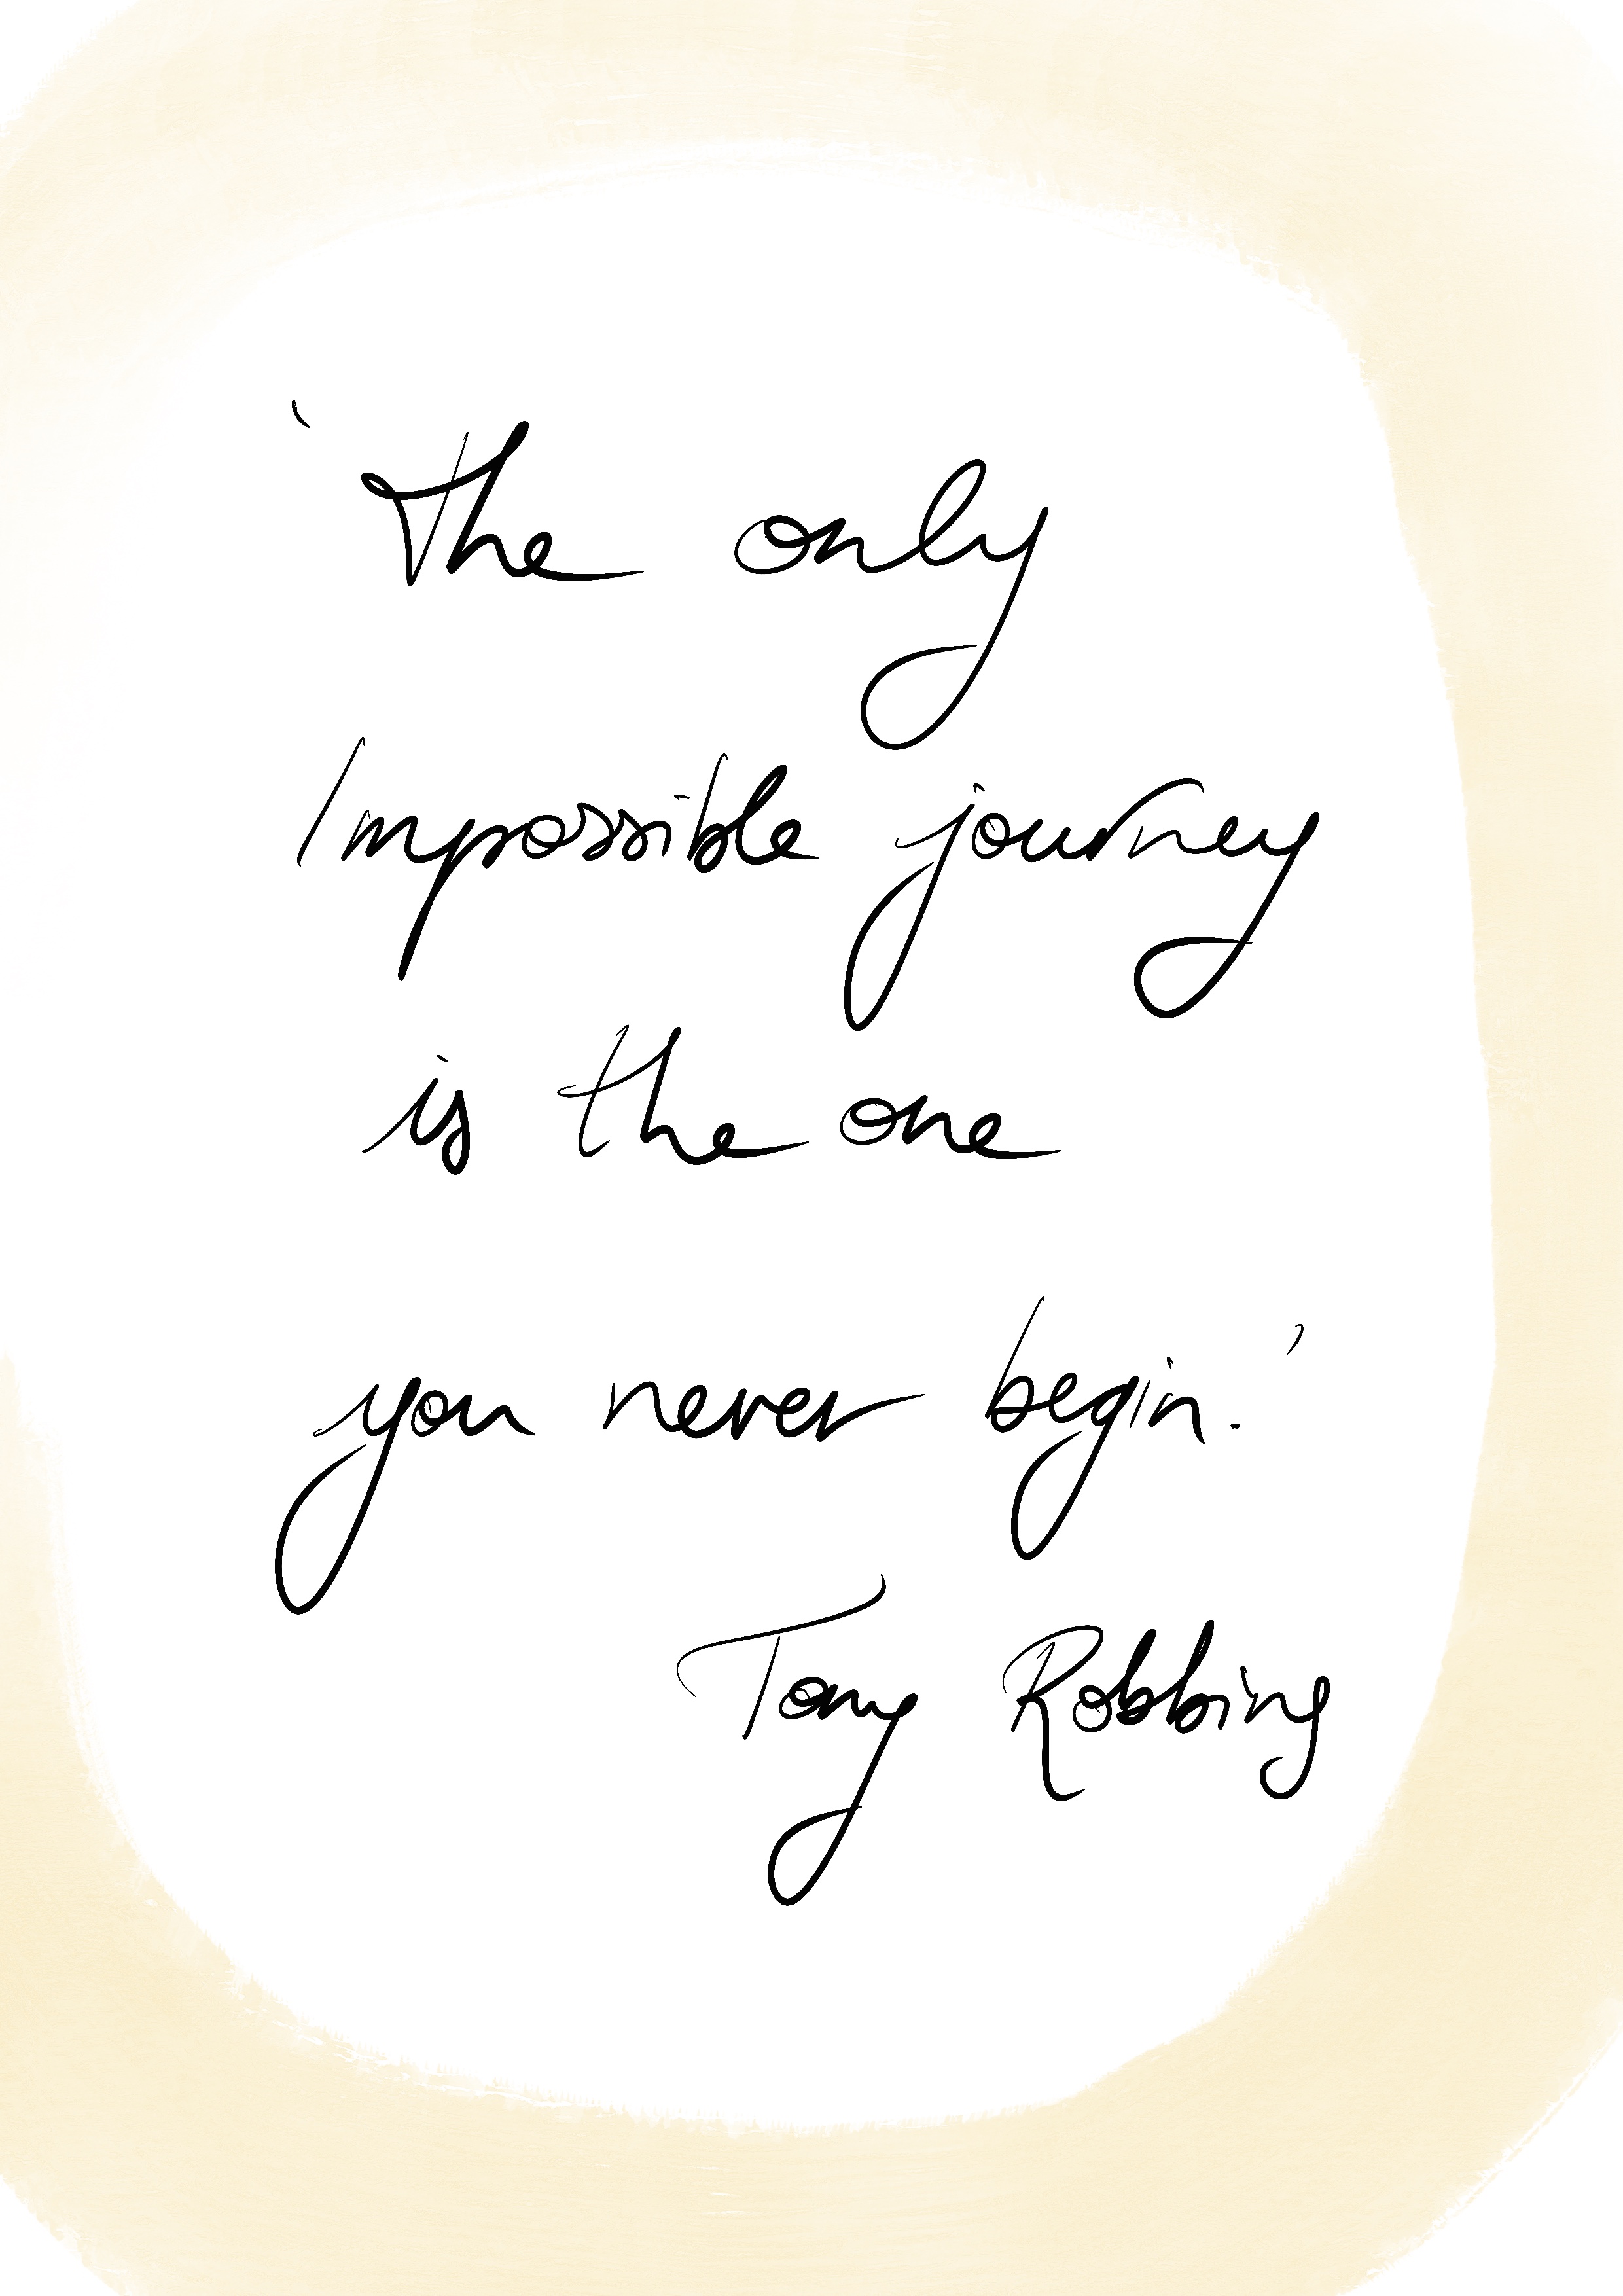 ‘The only
Impossible journey
is the one
you never begin.’
Tony Robbing